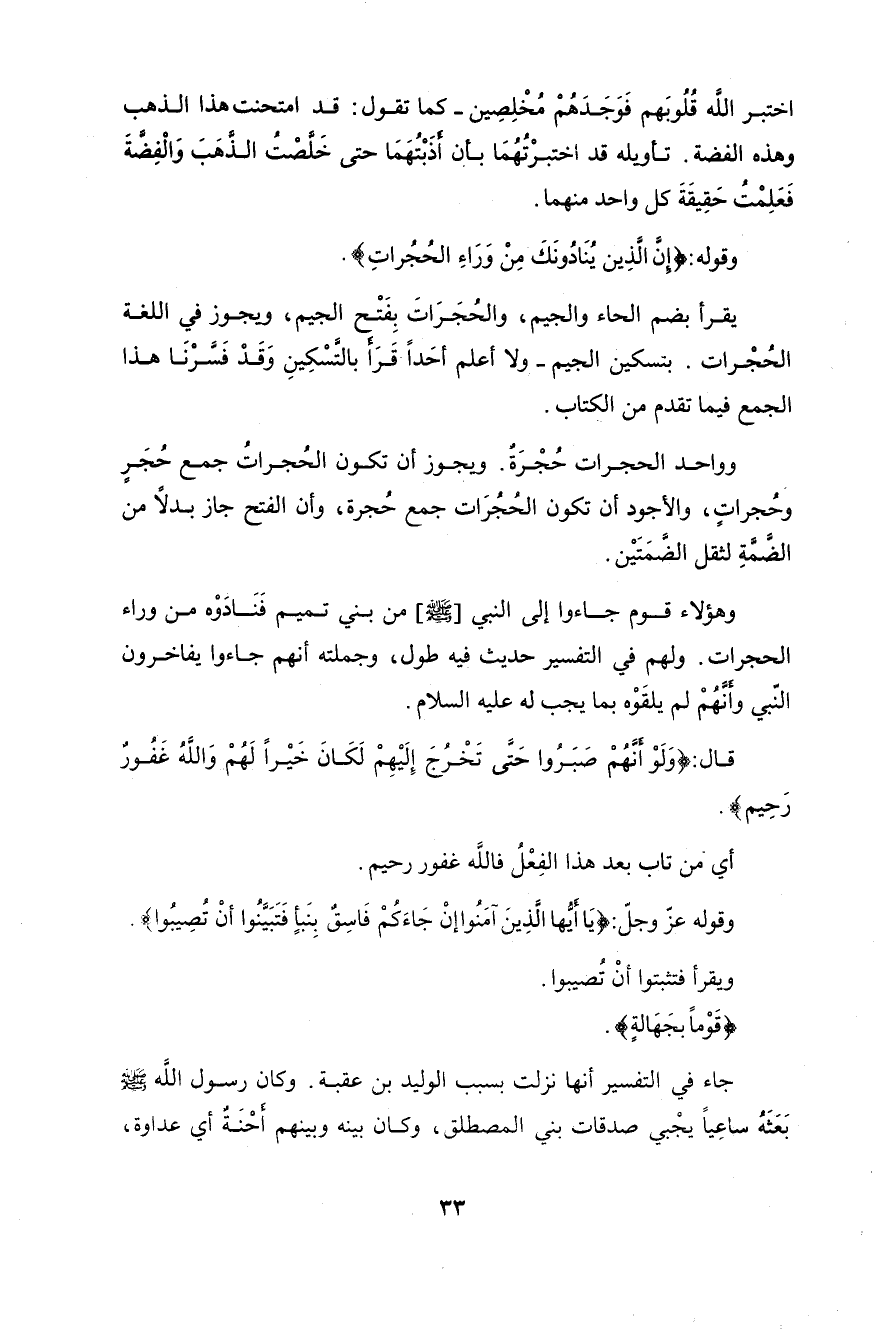 اختبر اللَّه قُلُوبَهم فَوَجَدَهُمْ مُخْلِصِين - كما تقول: قد امتحنت هذا الذهب
وهذه الفضة. تأويله قد اختبرْتُهُمَا بأن أَذَبْتُهَمَا حتى خَلَّصْتُ الذَّهَبَ وَالْفِضَّةَ
فَعَلِمْتُ حَقِيقَةَ كل واحد منهما.
وقوله:﴿إِنَّ الَّذِين يُنَادُونَكَ مِنْ وَرَاءِ الحُجُراتِ﴾.
يقرأ بضم الحاء والجيم، والحُجَرَاتَ بِفَتْح الجيم، ويجوز في اللغة
الحُجْرات . بتسكين الجيم - ولا أعلم أحَداً قَرَأَ بالتَّسْكِينِ وَقَدْ فَسَّرْنَا هذا
الجمع فيما تقدم من الكتاب.
وواحد الحجرات حُجْرَةٌ. ويجوز أن تكون الحُجراتُ جمع حُجَرٍ
وحُجراتٍ، والأجود أن تكون الحُجُرَات جمع حُجرة، وأن الفتح جاز بدلاً من
الضَّمَّةِ لثقل الضَّمَتَيْن.
وهؤلاء قوم جاءوا إلى النبي [ﷺ] من بني تميم فَنَادَوْه من وراء
الحجرات. ولهم في التفسير حديث فيه طول، وجملته أنهم جاءوا يفاخرون
النّبي وأَنَّهُمْ لم يلقَوْه بما يجب له عليه السلام.
قال:﴿وَلَوْ أَنَّهُمْ صَبَرُوا حَتَّى تَخْرُجَ إِلَيْهِمْ لَكَانَ خَيْراً لَهُمْ وَاللَّهُ غَفُورٌ
رَحِيم﴾.
أي من تاب بعد هذا الفِعْلُ فاللَّه غفور رحيم.
وقوله عزّ وجلّ:﴿يَا أَيُّها الَّذِينَ آمَنُوا إنْ جَاءَكُمْ فَاسِقٌ بِنَبأٍ فَتَبَيَّنُوا أنْ تُصِيبُوا﴾.
ويقرأ فتثبتوا أنْ تُصيبوا.
﴿قَوْماً بجَهَالةٍ﴾.
جاء في التفسير أنها نزلت بسبب الوليد بن عقبة. وكان رسول اللَّه ﷺ
بَعَثَهُ ساعِياً يجْبي صدقات بني المصطلق، وكان بينه وبينهم أَحْنَةٌ أي عداوة،
٣٣